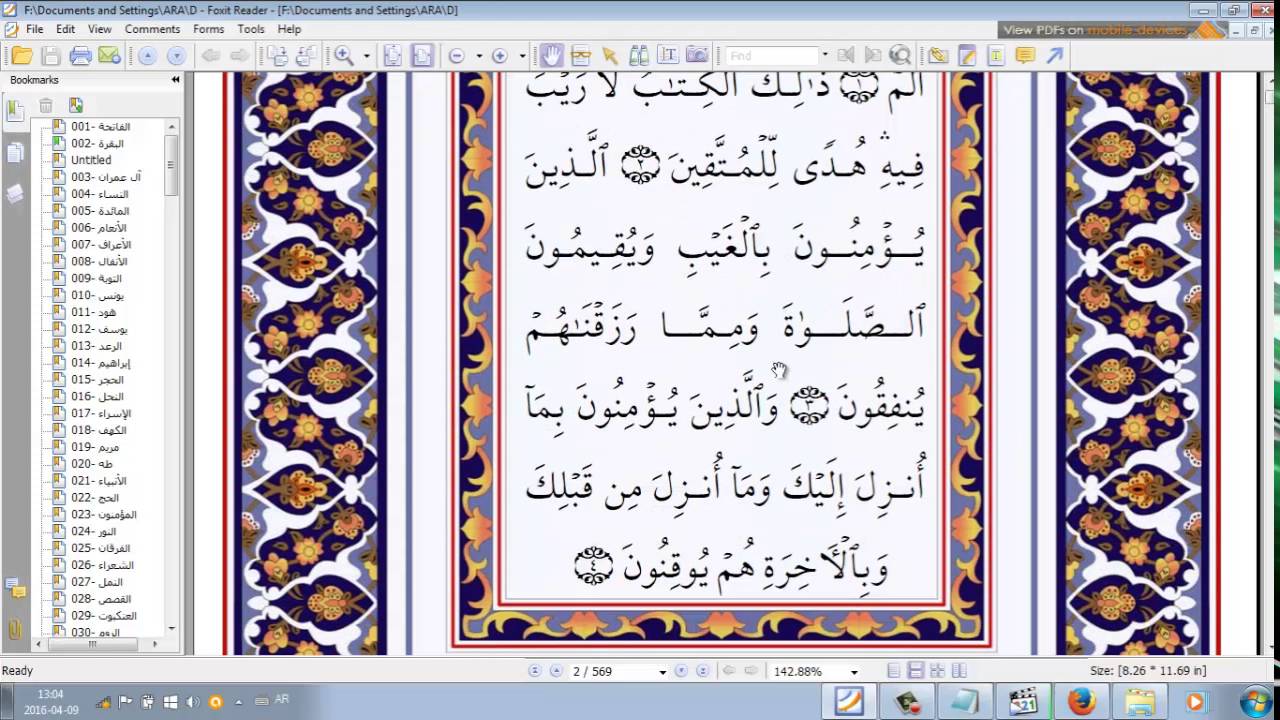 F:\Documents and Settings\ARA\D - Foxit Reader - [F:\Documents and Settings\ARA\D]
File Edit View Comments Forms Tools Help
View PDFs on mobile-devices
Find
Bookmarks
001- الفاتحة
002- البقرة
Untitled
003- آل عمران
004- النساء
005- المائدة
006- الأنعام
007- الأعراف
008- الأنفال
009- التوبة
010- يونس
011- هود
012- يوسف
013- الرعد
014- إبراهيم
015- الحجر
016- النحل
017- الإسراء
018- الكهف
019- مريم
020- طه
021- الأنبياء
022- الحج
023- المؤمنون
024- النور
025- الفرقان
026- الشعراء
027- النمل
028- القصص
029- العنكبوت
030- الروم
الٓمٓ ١ ذَٰلِكَ ٱلۡكِتَٰبُ لَا رَيۡبَۛ
فِيهِۛ هُدٗى لِّلۡمُتَّقِينَ ٢ ٱلَّذِينَ
يُؤۡمِنُونَ بِٱلۡغَيۡبِ وَيُقِيمُونَ
ٱلصَّلَوٰةَ وَمِمَّا رَزَقۡنَٰهُمۡ
يُنفِقُونَ ٣ وَٱلَّذِينَ يُؤۡمِنُونَ بِمَآ
أُنزِلَ إِلَيۡكَ وَمَآ أُنزِلَ مِن قَبۡلِكَ
وَبِٱلۡأٓخِرَةِ هُمۡ يُوقِنُونَ ٤
Ready
2 / 569
142.88%
Size: [8.26 * 11.69 in]
13:04
2016-04-09
AR
21